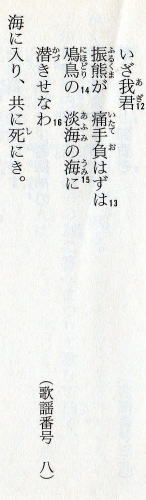 いざ我君12
振熊が　痛手負はずは13
鳰鳥の14　淡海の海に15
潜きせなわ16
海に入り、共に死にき。
（歌謡番号　八）